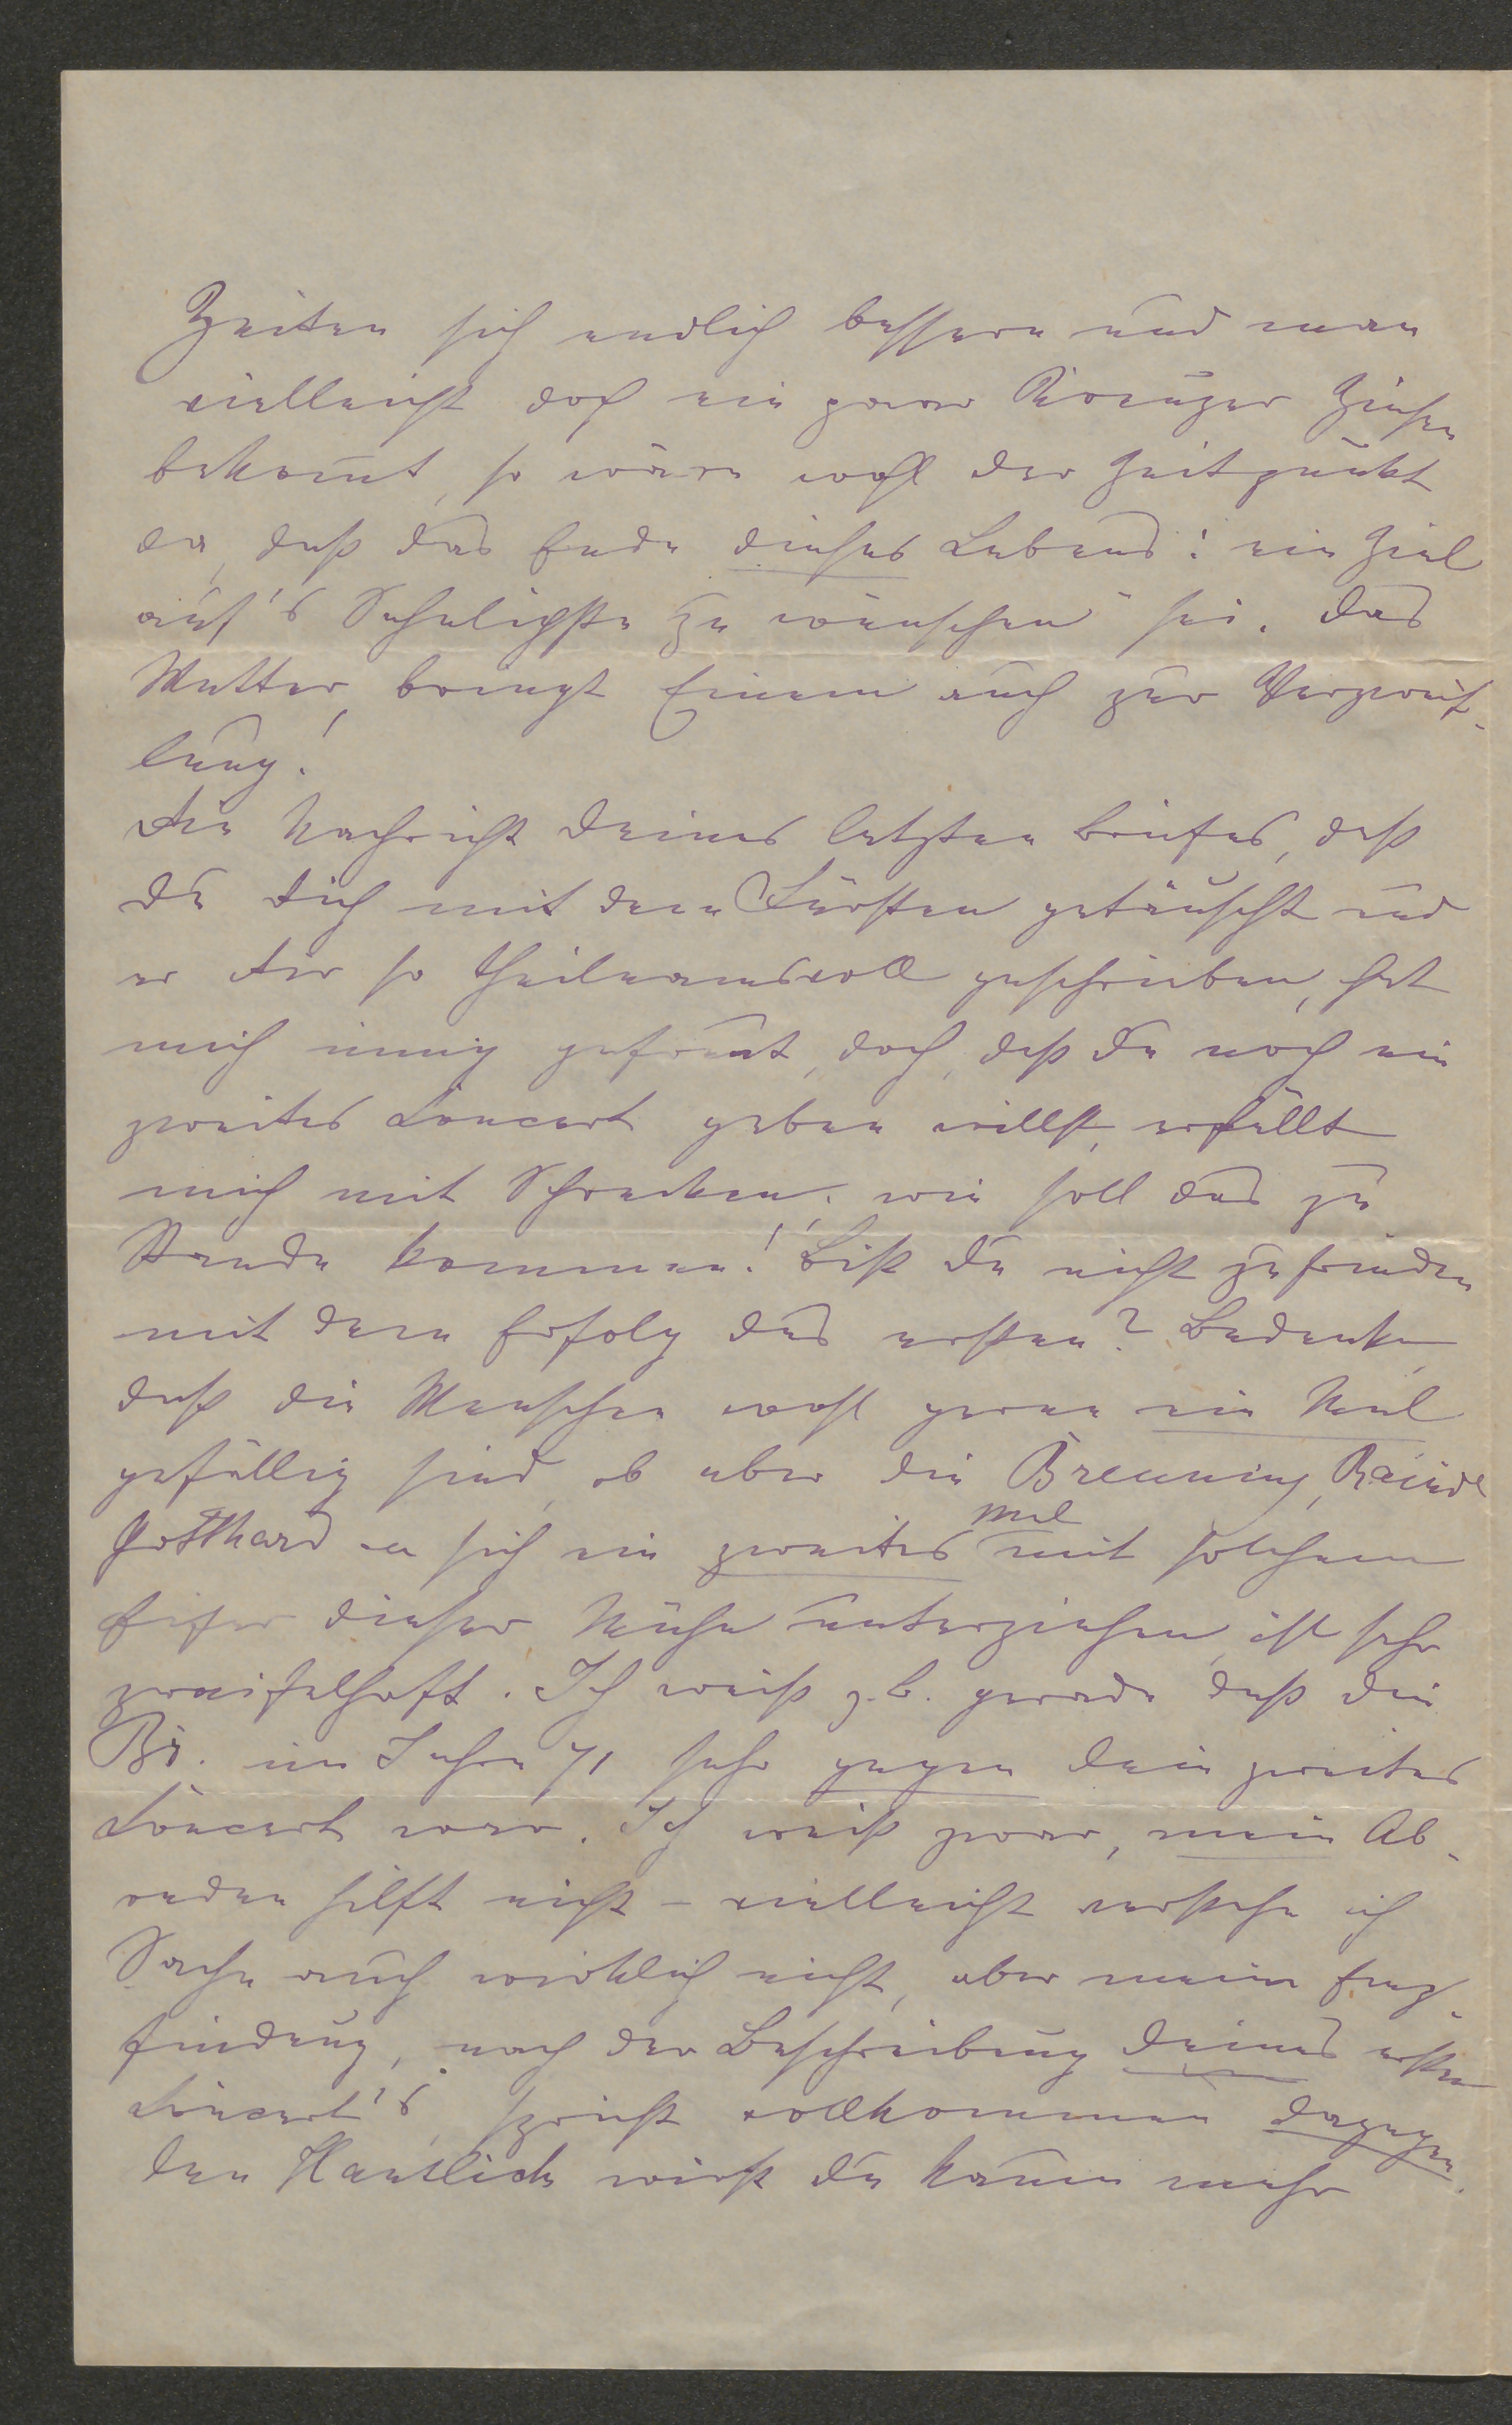 Zeiten sich endlich bessern und man
vielleicht doch ein paar Kreuzer Zinsen
bekom̄t, so wäre wohl der Zeitpunkt
da, daß das Ende dieses Lebens: „ein Ziel
auf's Sehnlichste zu wünschen" sei. Das
Wetter bringt Einem auch zur Verzweif-
lung!
Die Nachricht Deines letzten Briefes, daß
Du Dich mit dem Fürsten getäuscht und
er Dir so theilnamsvoll geschrieben, hat
mich innig gefreut, doch, daß Du noch ein
zweites Concert geben willst, erfüllt
mich mit Schrecken. wie soll das zu
Stande kommen! Bist Du nicht zufrieden
mit dem Erfolg des ersten? Bedenke,
daß die Menschen wohl gerne ein Mal
gefällig sind, ob aber die Breuning,
Gotthard sich ein zweites Mal mit solchem
Eifer dieser Mühe unterziehen, ist sehr
zweifelhaft. Ich weiß z.B. gerade daß die
Br. im Jahre 71 sehr gegen Dein zweites
Concert war. Ich weiß zwar, mein Ab-
reden hilft nicht – vielleicht verstehe ich
Sache auch wirklich nicht, aber meine Emp-
findung, nach der Beschreibung Deines ersten
Concert's, spricht vollkommen dagegen.
Den Hanslick wirst Du kaum mehr